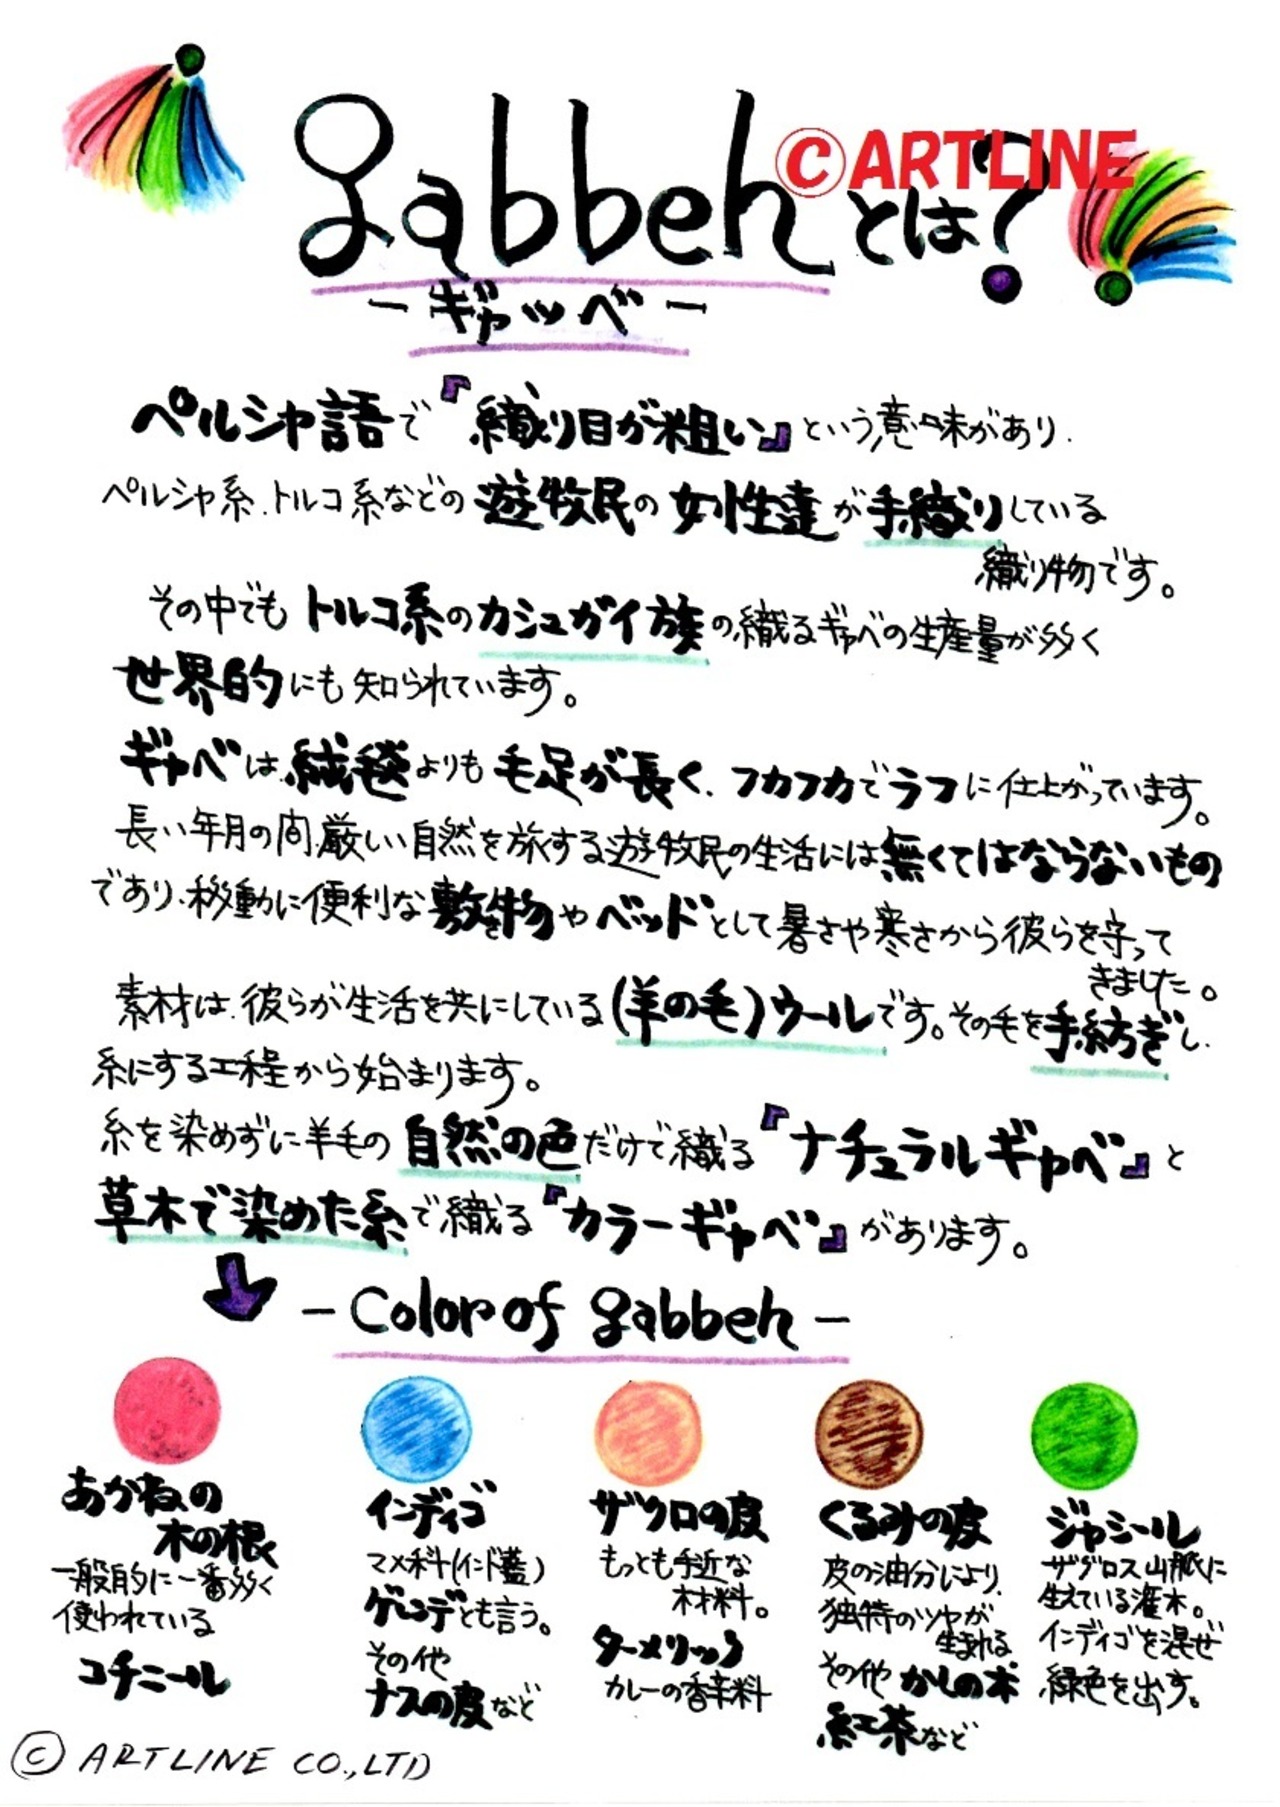 gabbehとは?
©ARTLINE
-ギャッベ-
ペルシャ語で『織り目が粗い』という意味があり、
ペルシャ系、トルコ系などの遊牧民の女性達が手織りしている
織り物です。
その中でもトルコ系のカシュガイ族の織るギャベの生産量が多く
世界的にも知られています。
ギャベは、絨毯よりも毛足が長く、フカフカでラフに仕上がっています。
長い年月の間、厳しい自然を旅する遊牧民の生活には無くてはならないもの
であり、移動に便利な敷き物やベッドとして暑さや寒さから彼らを守って
きました。
素材は、彼らが生活を共にしている(羊の毛)ウールです。その毛を手紡ぎし、
糸にする工程から始まります。
糸を染めずに羊毛の自然の色だけで織る『ナチュラルギャベ』と
草木で染めた糸で織る『カラーギャベ』があります。
-Color of gabbeh-
あかねの
木の根
一般的に一番多く
使われている
コチニール
インディゴ
マメ科(インド藍)
ゲレンデとも言う。
その他
ナスの皮など
ザクロの皮
もっとも手近な
材料。
ターメリック
カレーの香辛料
くるみの皮
皮の油分により、
独特のツヤが
生まれる
その他 かしの木
紅茶など
ジャシール
ザグロス山脈に
生えている灌木。
インディゴを混ぜ
緑色を出す。
© ARTLINE CO.,LTD